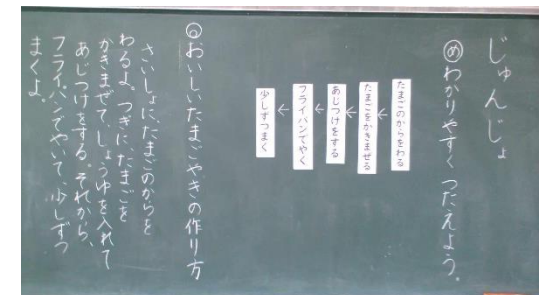 じゅんじょ
めわかりやすくつたえよう。
たまごのからをわる
↓
たまごをかきまぜる
↓
あじつけをする
↓
フライパンでやく
↓
少しずつまく
◎おいしいたまごやきの作り方
さいしょに、たまごのからを
わるよ。つぎに、たまごを
かきまぜて、しょうゆを入れて
あじつけをする。それから、
フライパンでやいて、少しずつ
まくよ。